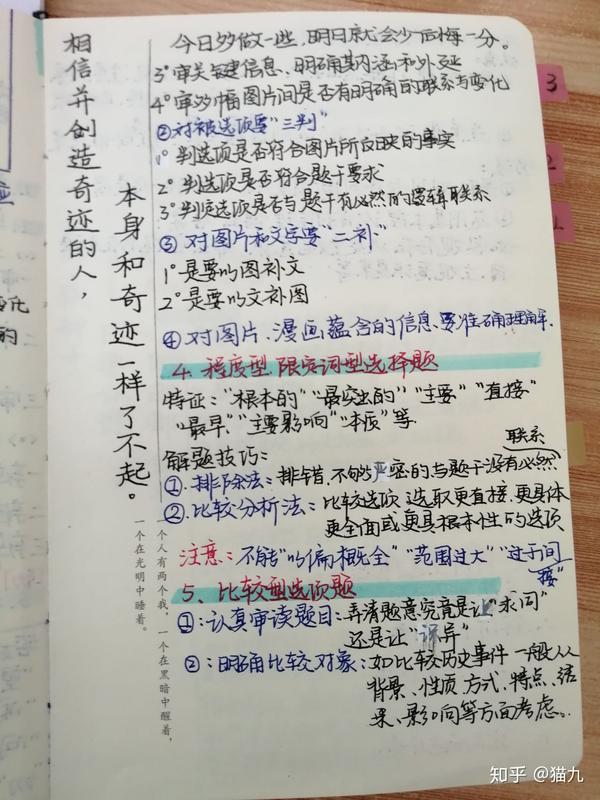 今日多做一些,明日就会少后悔一分。
3°审关键信息、明确其内涵和外延
4°审多幅图片间是否有明确的联系与变化
②对被选项要"三判"
1°判选项是否符合图片所反映史的事实
2°判选项是否符合题干要求
3°判质选项是否与题干有必然的逻辑联系
③对图片和文字要"二补"
1°是要以图补文
2°是要以文补图
④对图片、漫画蕴含的信息、要准确理解。
4.程度型限定词型选择题
特征:"根本的""最突出的""主要""直接"
"最早""主要影响""本质"等
解题技巧:
联系
①.排除法:排错、不够严密的与题干没有必然
②.比较分析法:比较选项 选取更直接、更具体
更全面或更具根本性的选项
注意:不能"以偏概全""范围过大""过于间
接"
5、比较型选项题
①:认真审读题目:弄清题意究竟是让"求同"
还是让"译异"
②:明确比较对象:如比较历史事件 一般从
背景、性质、方式、特点、结
果、影响等方面考虑。
相信并创造奇迹的人,
本身和奇迹一样了不起。
一个人有两个我,一个在黑暗中醒着,
一个在光明中睡着。
3
2
1
的
知乎 @猫九